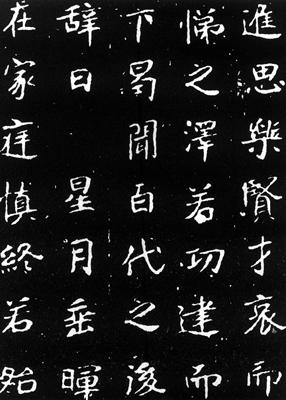 進思樂賢才哀而
悌之澤若功建而
下曷聞百代之後
辭曰 星月垂暉
在家庭慎終若始